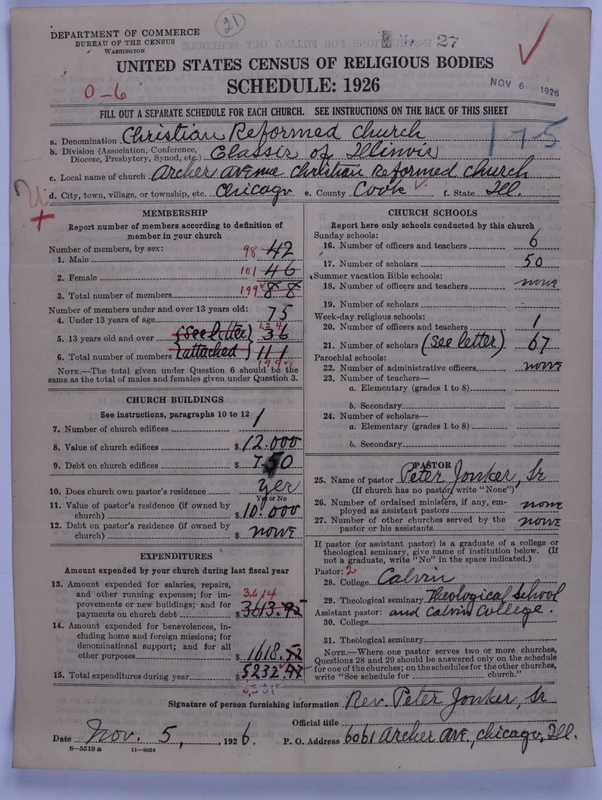 DEPARTMENT OF COMMERCE
BUREAU OF THE CENSUS
WASHINGTON
21
27
UNITED STATES CENSUS OF RELIGIOUS BODIES
SCHEDULE: 1926
NOV 6 1926
0-6
FILL OUT A SEPARATE SCHEDULE FOR EACH CHURCH. SEE INSTRUCTIONS ON THE BACK OF THIS SHEET
175
a. Denomination Christian Reformed Church
b. Division (Association, Conference, Diocese, Presbytery, Synod, etc.) Classis of Illinois
c. Local name of church Archer Avenue Christian Reformed Church
d. City, town, village, or township, etc. Chicago e. County Cook f. State Ill.
MEMBERSHIP
Report number of members according to definition of
member in your church
Number of members, by sex:
1. Male 98 42
2. Female 101 46
3. Total number of members 199 88
Number of members under and over 13 years old:
4. Under 13 years of age 75
5. 13 years old and over (see letter) 124 36
6. Total number of members (attached) 111 199
NOTE.—The total given under Question 6 should be the
same as the total of males and females given under Question 3.
CHURCH BUILDINGS
See instructions, paragraphs 10 to 12
7. Number of church edifices 1
8. Value of church edifices $12.000
9. Debt on church edifices $750
10. Does church own pastor's residence yes
Yes or No
11. Value of pastor's residence (if owned by
church) $10.000
12. Debt on pastor's residence (if owned by
church) $ none
EXPENDITURES
Amount expended by your church during last fiscal year
13. Amount expended for salaries, repairs,
and other running expenses; for im-
provements or new buildings; and for
payments on church debt 3614 $3613.95
14. Amount expended for benevolences, in-
cluding home and foreign missions; for
denominational support; and for all
other purposes $1618.
15. Total expenditures during year $5232.
CHURCH SCHOOLS
Report here only schools conducted by this church
Sunday schools:
16. Number of officers and teachers 6
17. Number of scholars 50
Summer vacation Bible schools:
18. Number of officers and teachers none
19. Number of scholars
Week-day religious schools:
20. Number of officers and teachers 1
21. Number of scholars (see letter) 67
Parochial schools:
22. Number of administrative officers none
23. Number of teachers—
a. Elementary (grades 1 to 8)
b. Secondary
24. Number of scholars—
a. Elementary (grades 1 to 8)
b. Secondary
PASTOR
25. Name of pastor Peter Jonker, Sr
(If church has no pastor, write "None")
26. Number of ordained ministers, if any, em-
ployed as assistant pastors none
27. Number of other churches served by the
pastor or his assistants none
If pastor (or assistant pastor) is a graduate of a college or
theological seminary, give name of institution below. (If
not a graduate, write "No" in the space indicated.)
Pastor: 2
28. College Calvin
29. Theological seminary Theological School
Assistant pastor: and Calvin College.
30. College
31. Theological seminary
NOTE.—Where one pastor serves two or more churches,
Questions 28 and 29 should be answered only on the schedule
for one of the churches; on the schedules for the other churches,
write "See schedule for church."
Signature of person furnishing information Rev. Peter Jonker, Sr
Official title
Date Nov. 5, 1926. P. O. Address 6061 Archer Ave, Chicago, Ill.
8—5518 a 11—9034